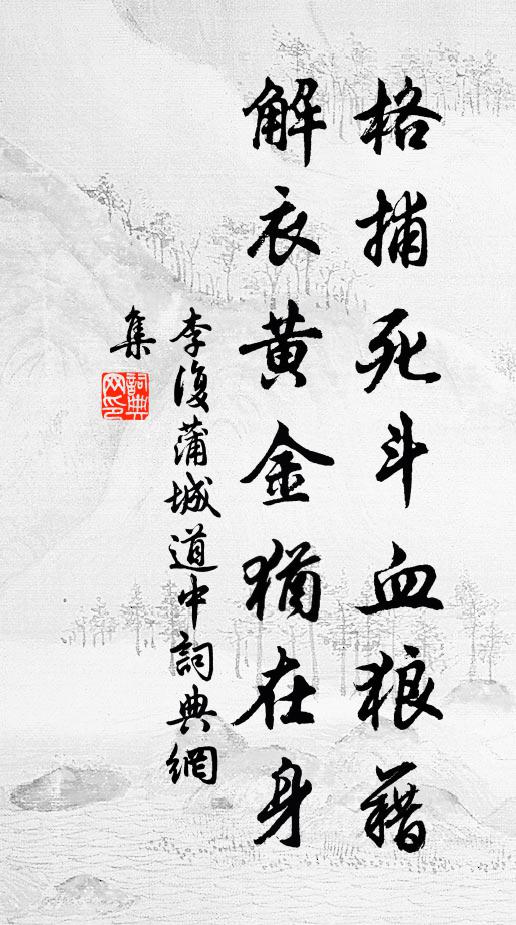 格捕死斗血狼藉
解衣黄金猶在身
李復蒲城道中詞典網
集
詞典網印